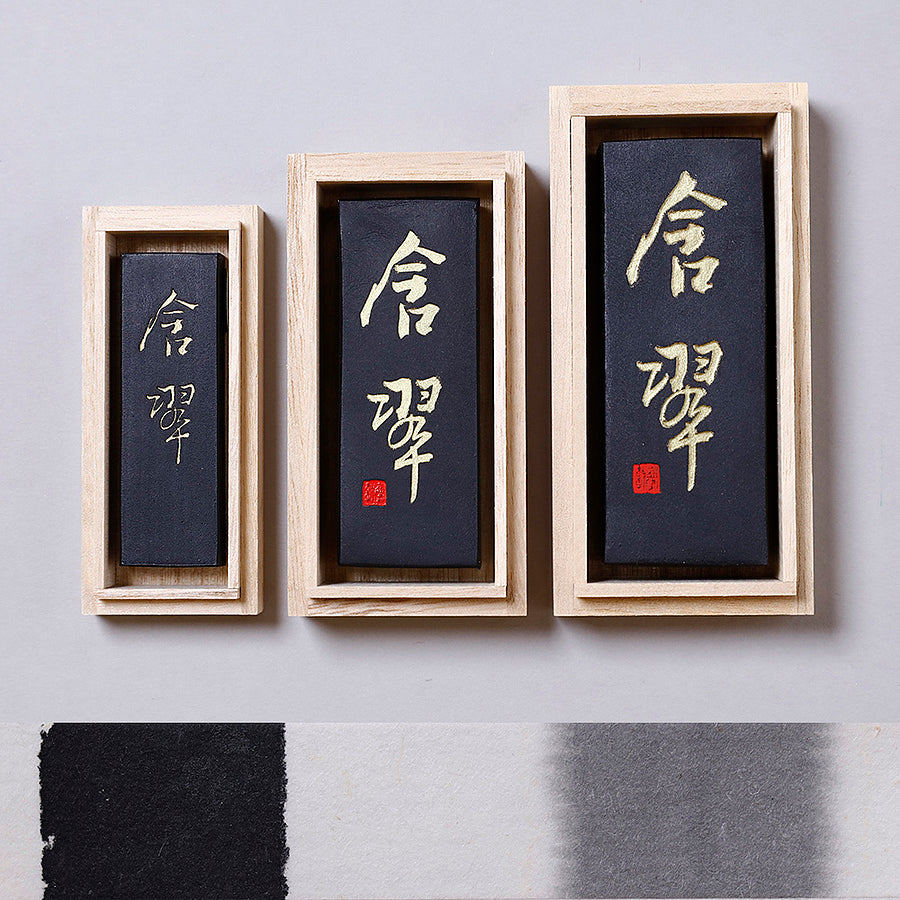 含翠
含翠
含翠